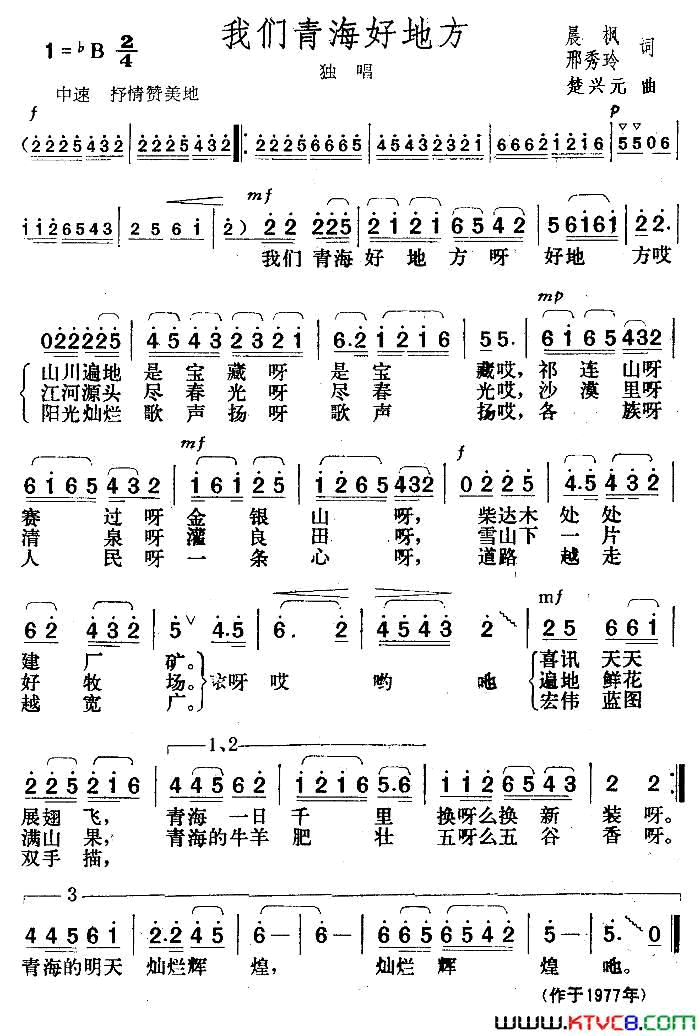 我们青海好地方
1=♭B 2/4
独唱
晨枫
邢秀玲 词
楚兴元 曲
中速 抒情赞美地
f p
(2225432 2225432 22256665 45432321 66621216 5506
mf
11265432 2561 2) 22 225 2121 6542 56161 22.
我们 青海 好 地 方 呀 好地 方哎
mp
022225 4543 2321 6.2 1216 55. 6165 432
山川遍地 是宝藏呀 是宝 藏哎, 祁连山呀
江河源头 尽春光呀 尽春 光哎, 沙漠里呀
阳光灿烂 歌声扬呀 歌声 扬哎, 各族呀
mf f
6165 432 161 25 1265 432 0225 4.5 432
赛过呀 金银山呀, 柴达木处处
清泉呀 灌良田呀, 雪山下一片
人民呀 一条心呀, 道路越走
mf
62 432 5 4.5 6. 2 4543 2 25 661
建厂矿。 喜讯天天
好牧场。 哝呀 哎 哟 吔 遍地鲜花
越宽广。 宏伟蓝图
1、2
225 216 4456 2 1216 5.6 112 6543 2 2
展翅飞, 青海一日千里 换呀么换新装呀。
满山果, 青海的牛羊肥壮 五呀么五谷香呀。
双手描,
3
44561 2.2 45 6– 6– 665 6542 5– 5. 0
青海的明天 灿烂辉煌, 灿烂辉煌吔。
(作于1977年)
www.KTVC8.com